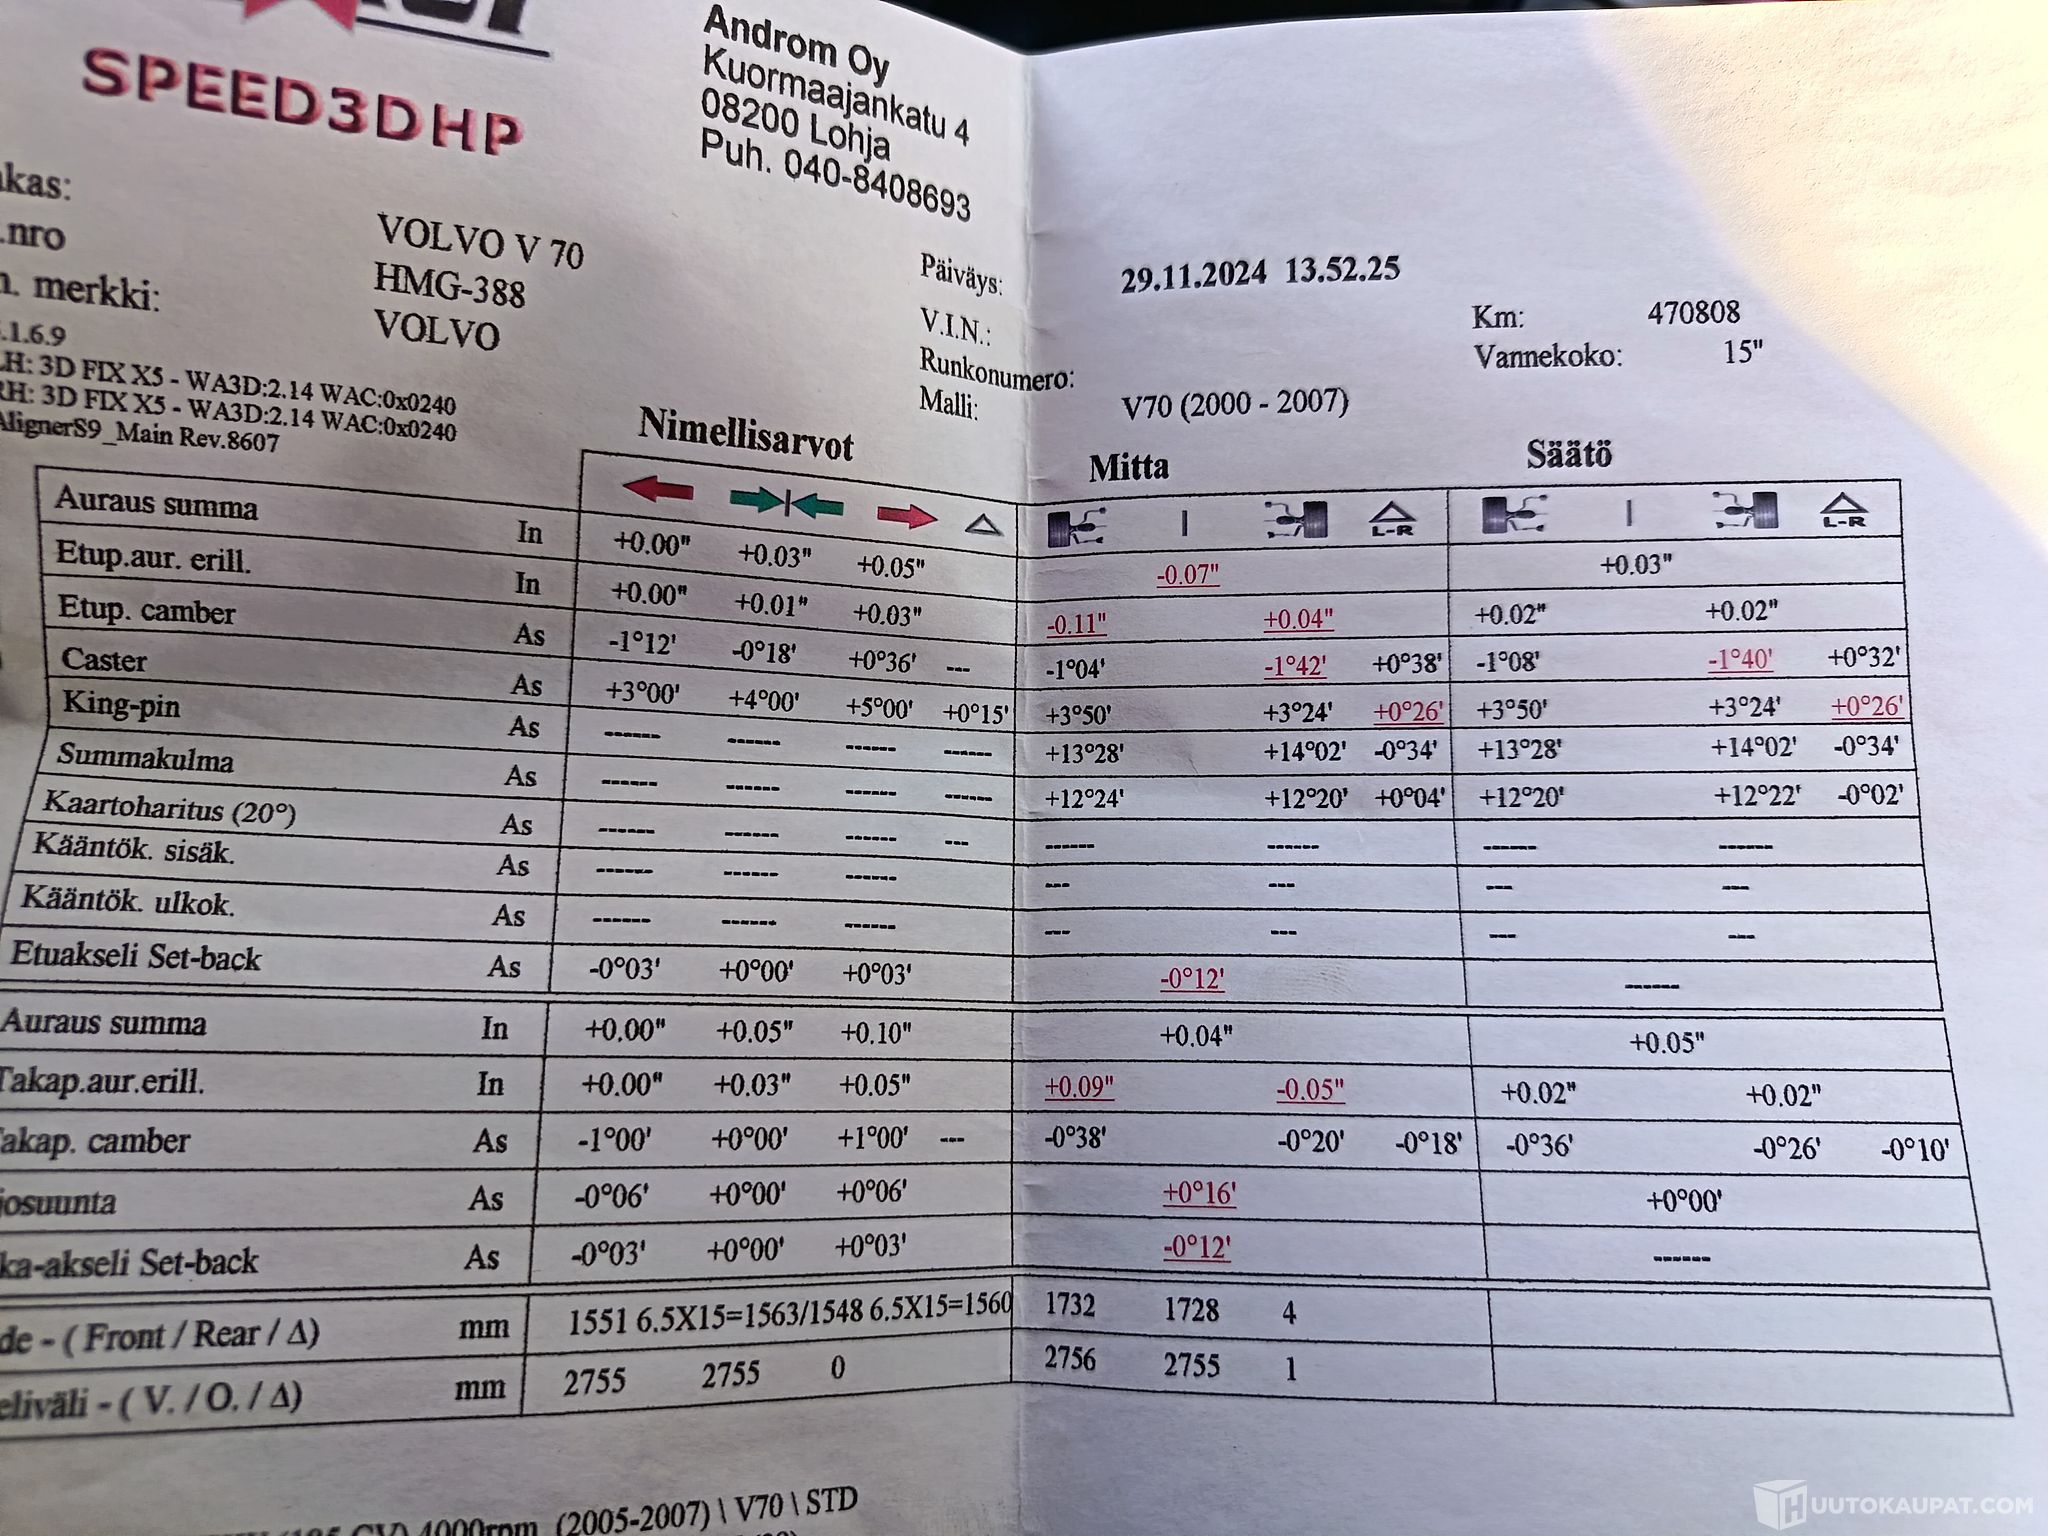 SPEED3DHP
Androm Oy
Kuormaajankatu 4
08200 Lohja
Puh. 040-8408693
akas:
.nro
VOLVO V 70
HMG-388
merkki:
VOLVO
.1.6.9
LH: 3D FIX X5 - WA3D:2.14 WAC:0x0240
RH: 3D FIX X5 - WA3D:2.14 WAC:0x0240
AlignerS9_Main Rev.8607
Päiväys: 29.11.2024 13.52.25
V.I.N.: Km: 470808
Runkonumero: Vannekoko: 15"
Malli: V70 (2000 - 2007)
Nimellisarvot Mitta Säätö
L-R L-R
Auraus summa In +0.00" +0.03" +0.05" -0.07" +0.03"
Etup.aur. erill. In +0.00" +0.01" +0.03" -0.11" +0.04" +0.02" +0.02"
Etup. camber As -1°12' -0°18' +0°36' --- -1°04' -1°42' +0°38' -1°08' -1°40' +0°32'
Caster As +3°00' +4°00' +5°00' +0°15' +3°50' +3°24' +0°26' +3°50' +3°24' +0°26'
King-pin As ------ ------ ------ ------ +13°28' +14°02' -0°34' +13°28' +14°02' -0°34'
Summakulma As ------ ------ ------ ------ +12°24' +12°20' +0°04' +12°20' +12°22' -0°02'
Kaartoharitus (20°) As ------ ------ ------ --- ------ ------ ------ ------
Kääntök. sisäk. As ------ ------ ------ --- --- --- ---
Kääntök. ulkok. As ------ ------ ------ --- --- --- ---
Etuakseli Set-back As -0°03' +0°00' +0°03' -0°12' ------
Auraus summa In +0.00" +0.05" +0.10" +0.04" +0.05"
Takap.aur.erill. In +0.00" +0.03" +0.05" +0.09" -0.05" +0.02" +0.02"
Takap. camber As -1°00' +0°00' +1°00' --- -0°38' -0°20' -0°18' -0°36' -0°26' -0°10'
josuunta As -0°06' +0°00' +0°06' +0°16' +0°00'
ka-akseli Set-back As -0°03' +0°00' +0°03' -0°12' ------
de - ( Front / Rear / Δ) mm 1551 6.5X15=1563/1548 6.5X15=1560 1732 1728 4
eliväli - ( V. / O. / Δ) mm 2755 2755 0 2756 2755 1
4000rpm (2005-2007) \ V70 \ STD
HUUTOKAUPAT.COM